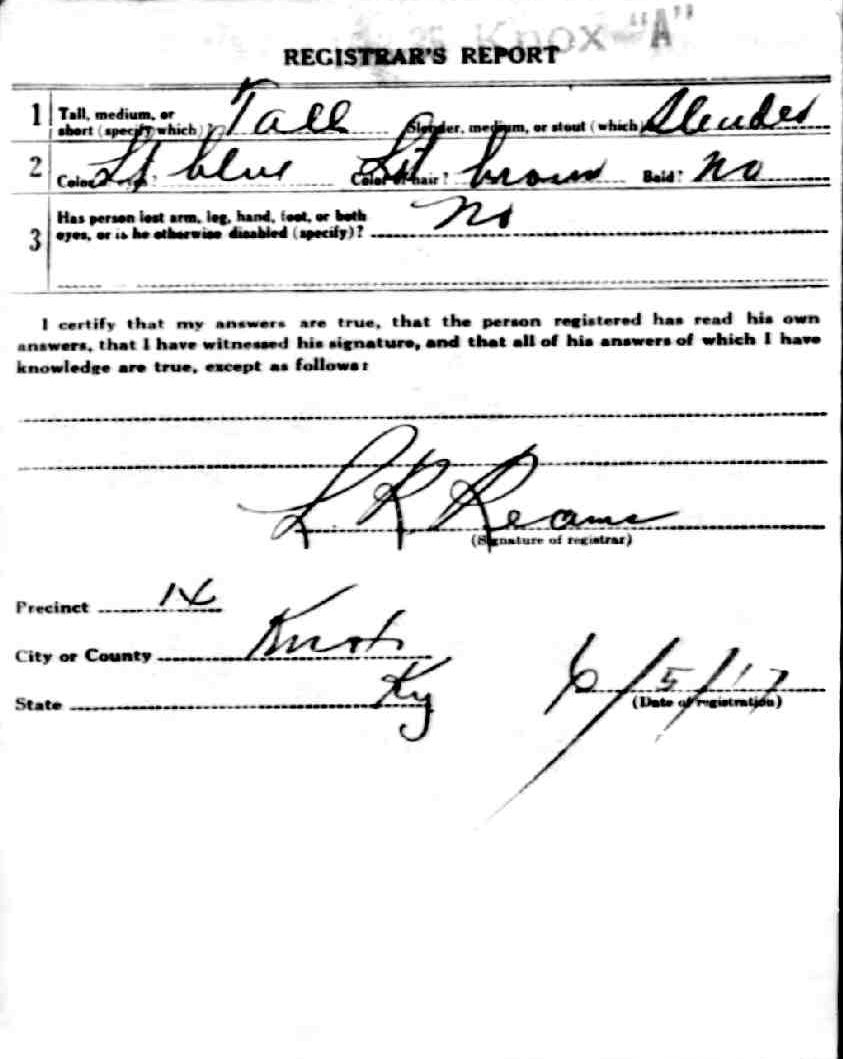 Knox "A"
REGISTRAR'S REPORT
1 Tall, medium, or short (specify which)? Tall Slender, medium, or stout (which)? Slender
2 Color of eyes? Lt blue Color of hair? Lt brown Bald? No
3 Has person lost arm, leg, hand, foot, or both
eyes, or is he otherwise disabled (specify)? No
I certify that my answers are true, that the person registered has read his own
answers, that I have witnessed his signature, and that all of his answers of which I have
knowledge are true, except as follows:
L R Reams
(Signature of registrar)
Precinct
City or County Knox
State Ky 6/5/17
(Date of registration)